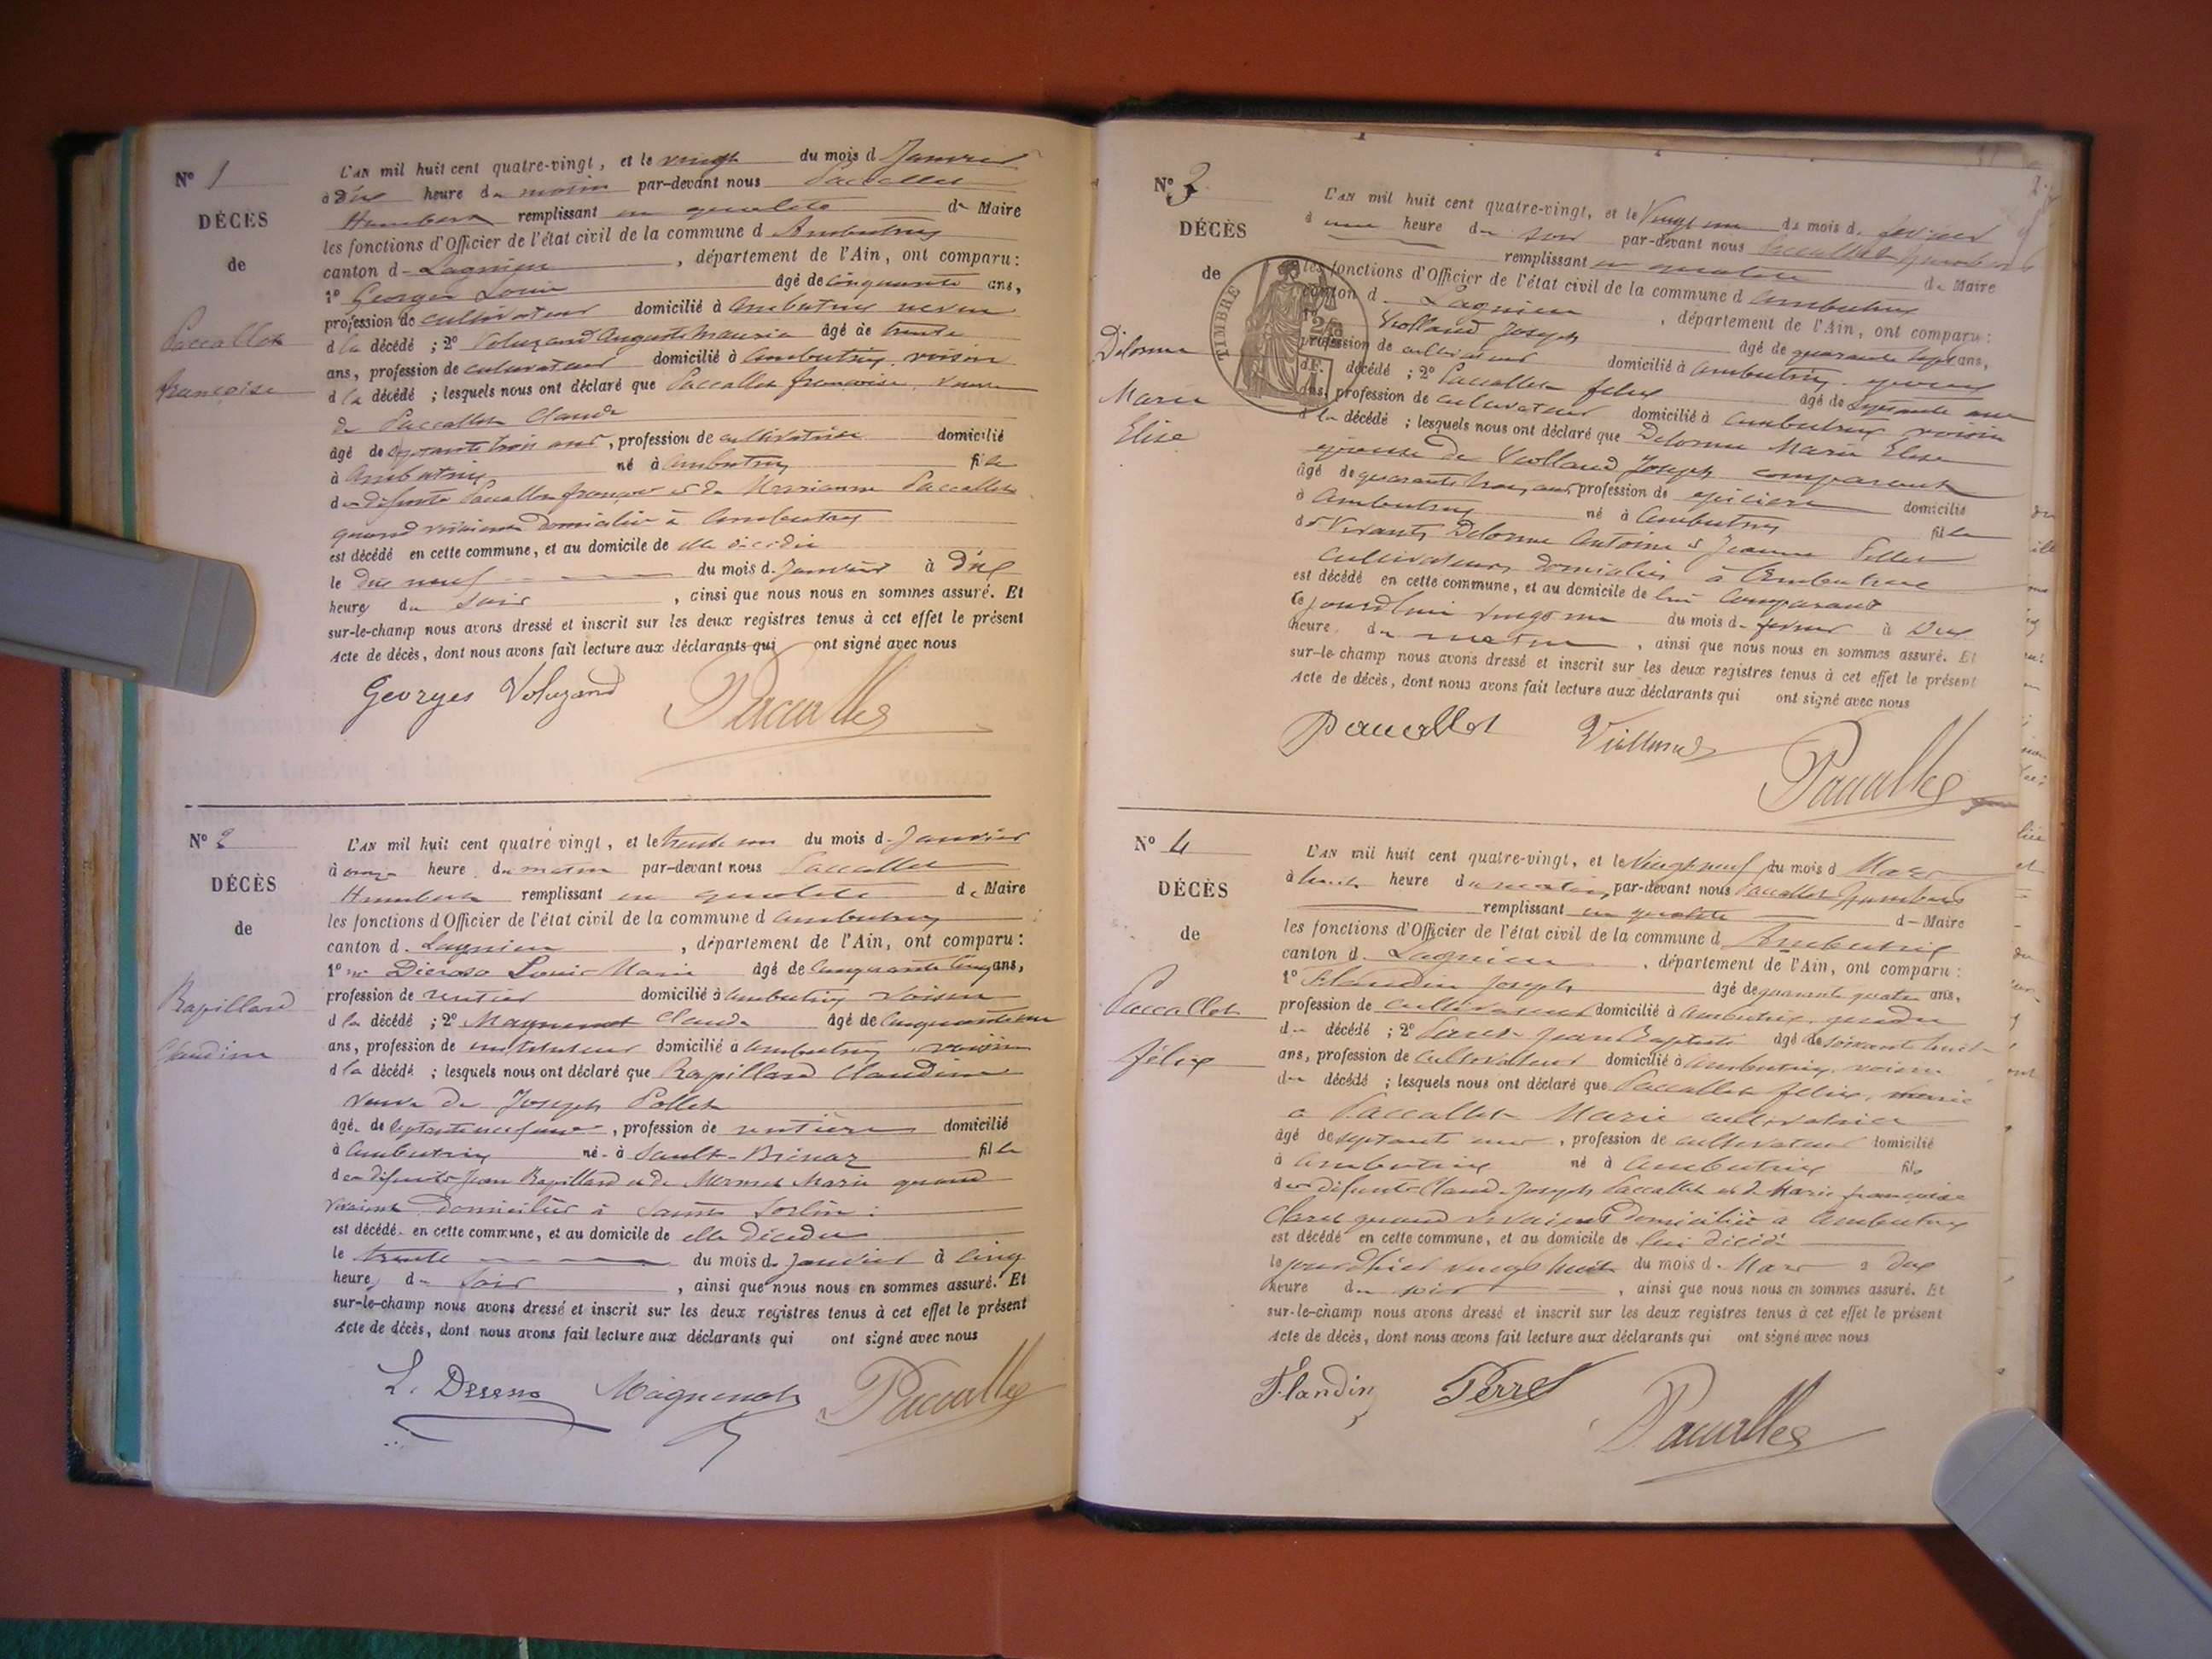 N° 1
DÉCÈS
de
Paccallet
françoise
L'AN mil huit cent quatre-vingt, et le vingt du mois d Janvier
à dix heure du matin par-devant nous Paccallet
Humbert remplissant en qualité de Maire
les fonctions d'Officier de l'état civil de la commune d Ambutrix
canton d Lagnieu, département de l'Ain, ont comparu:
1° Georges Louis âgé de cinquante ans,
profession de cultivateur domicilié à Ambutrix neveu
d la décédé; 2° Voluzand Auguste Maurice âgé de trente
ans, profession de cultivateur domicilié à Ambutrix voisin
d la décédé; lesquels nous ont déclaré que Paccallet françoise, veuve
de Paccallet Claude
âgé de septante trois ans, profession de cultivatrice domicilié
à Ambutrix né à Ambutrix fille
des défunts Paccallet françois et de Marianne Paccallet
quand vivaient domiciliés à Ambutrix
est décédé en cette commune, et au domicile de elle décédée
le dix neuf du mois d Janvier à dix
heure du soir, ainsi que nous nous en sommes assuré. Et
sur-le-champ nous avons dressé et inscrit sur les deux registres tenus à cet effet le présent
Acte de décès, dont nous avons fait lecture aux déclarants qui ont signé avec nous
Georges Voluzand Paccallet
N° 2
DÉCÈS
de
Rapillard
Claudine
L'AN mil huit cent quatre vingt, et le trente un du mois d Janvier
à onze heure du matin par-devant nous Paccallet
Humbert remplissant en qualité de Maire
les fonctions d'Officier de l'état civil de la commune d Ambutrix
canton d Lagnieu, département de l'Ain, ont comparu:
1° Louis Marie âgé de cinquante cinq ans,
profession de rentier domicilié à Ambutrix voisin
d la décédé; 2° Magnenot Claude âgé de cinquante un
ans, profession de instituteur domicilié à Ambutrix voisin
d la décédé; lesquels nous ont déclaré que Rapillard Claudine
veuve de Joseph Pollet
âgé de septante neuf ans, profession de rentière domicilié
à Ambutrix né à Sault-Brénaz fille
des défunts Jean Rapillard et de Mermet Marie quand
vivaient domiciliés à Saint Sorlin
est décédé en cette commune, et au domicile de elle décédée
le trente du mois d Janvier à cinq
heure du soir, ainsi que nous nous en sommes assuré. Et
sur-le-champ nous avons dressé et inscrit sur les deux registres tenus à cet effet le présent
Acte de décès, dont nous avons fait lecture aux déclarants qui ont signé avec nous
L. Magnenot Paccallet
N° 3
DÉCÈS
de
Delorme
Marie
Elise
TIMBRE
L'AN mil huit cent quatre-vingt, et le Vingt un du mois d février
à une heure du soir par-devant nous Paccallet Humbert
remplissant en qualité de Maire
les fonctions d'Officier de l'état civil de la commune d Ambutrix
canton d Lagnieu, département de l'Ain, ont comparu:
1° Violland Joseph âgé de quarante sept ans,
profession de cultivateur domicilié à Ambutrix époux
d décédé; 2° Paccallet félix âgé de septante un
ans, profession de cultivateur domicilié à Ambutrix voisin
d la décédé; lesquels nous ont déclaré que Delorme Marie Elise
épouse de Violland Joseph comparant
âgé de quarante trois ans profession de épicière domicilié
à Ambutrix né à Ambutrix fille
des Vivants Delorme Antoine et Jeanne
cultivateurs domiciliés à Ambutrix
est décédé en cette commune, et au domicile de lui comparant
le jourd'hui vingt un du mois d février à Dix
heure du matin, ainsi que nous nous en sommes assuré. Et
sur-le-champ nous avons dressé et inscrit sur les deux registres tenus à cet effet le présent
Acte de décès, dont nous avons fait lecture aux déclarants qui ont signé avec nous
Paccallet Violland
Paccallet
N° 4
DÉCÈS
de
Paccallet
félix
L'AN mil huit cent quatre-vingt, et le Vingt neuf du mois d Mars
à huit heure du matin, par-devant nous Paccallet Humbert
remplissant en qualité d Maire
les fonctions d'Officier de l'état civil de la commune d Ambutrix
canton d Lagnieu, département de l'Ain, ont comparu:
1° Flandin Joseph âgé de quarante quatre ans,
profession de cultivateur domicilié à Ambutrix gendre
du décédé; 2° Jean Baptiste âgé de soixante huit
ans, profession de cultivateur domicilié à Ambutrix, voisin
du décédé; lesquels nous ont déclaré que Paccallet félix, marié
à Paccallet Marie cultivatrice
âgé de septante un, profession de cultivateur domicilié
à Ambutrix né à Ambutrix fils
des défunts Claude Joseph Paccallet et de Marie françoise
Claret quand vivaient domiciliés à Ambutrix
est décédé en cette commune, et au domicile de lui décédé
le jour d'hier vingt huit du mois d Mars à dix
heure du soir, ainsi que nous nous en sommes assuré. Et
sur-le-champ nous avons dressé et inscrit sur les deux registres tenus à cet effet le présent
Acte de décès, dont nous avons fait lecture aux déclarants qui ont signé avec nous
Flandin Perret
Paccallet